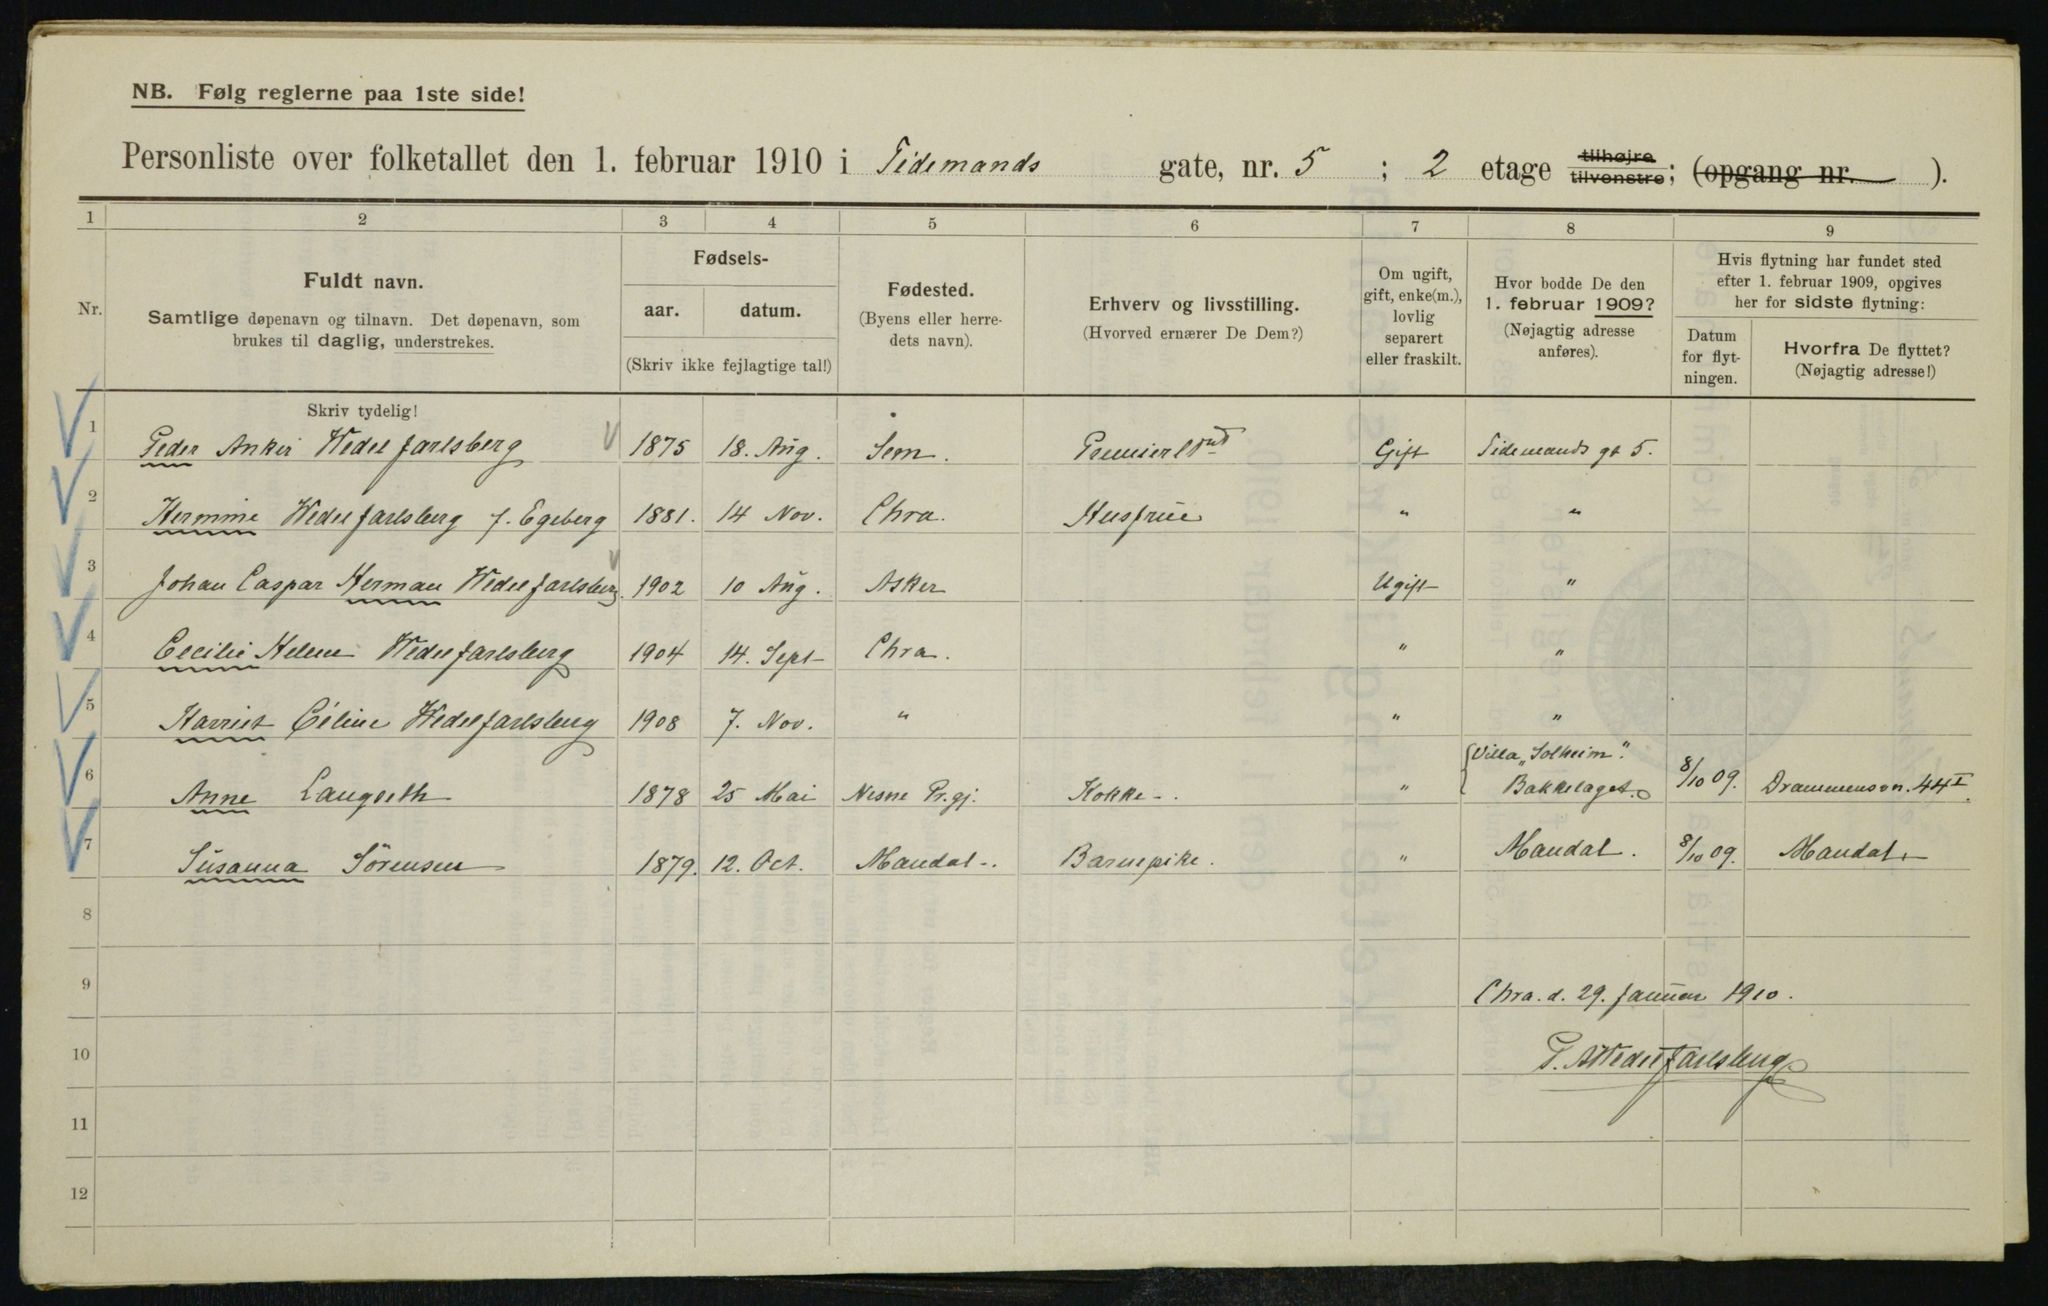 NB. Følg reglerne paa 1ste side!
Personliste over folketallet den 1. februar 1910 i Tidemands gate, nr. 5 ; 2 etage tilhøjre tilvenstre; (opgang nr. ).
1 2 3 4 5 6 7 8 9
Nr.
Fuldt navn.
Samtlige døpenavn og tilnavn. Det døpenavn, som
brukes til daglig, understrekes.
Fødsels-
aar. datum.
(Skriv ikke fejlagtige tal!)
Fødested.
(Byens eller herre-
dets navn).
Erhverv og livsstilling.
(Hvorved ernærer De Dem?)
Om ugift,
gift, enke(m.),
lovlig
separert
eller fraskilt.
Hvor bodde De den
1. februar 1909?
(Nøjagtig adresse
anføres).
Hvis flytning har fundet sted
efter 1. februar 1909, opgives
her for sidste flytning:
Datum
for flyt-
ningen.
Hvorfra De flyttet?
(Nøjagtig adresse!)
Skriv tydelig!
1 Peder Anker Wedel Jarlsberg 1875 18. Aug. Sem. Premierltnt Gift Tidemands gt 5.
2 Hermine Wedel Jarlsberg f. Egeberg 1881. 14 Nov. Chra. Husfrue " "
3 Johan Caspar Herman Wedel Jarlsberg. 1902 10 Aug. Asker Ugift "
4 Cecilie Helene Wedel Jarlsberg 1904 14. Sept Chra. " "
5 Harriet Céline Wedel Jarlsberg 1908 7. Nov. " " "
6 Anne Langseth 1878 25 Mai Nesne Pr.gj. Kokke - . " Villa "Solheim".
Bakkelaget. 8/10 09. Drammensvn. 44 I.
7 Susanna Sörensen 1879. 12. Oct. Mandal - . Barnepike. " Mandal. 8/10 09. Mandal
8
9 Chra. d. 29. Januar 1910.
10 P. A Wedel Jarlsberg
11
12